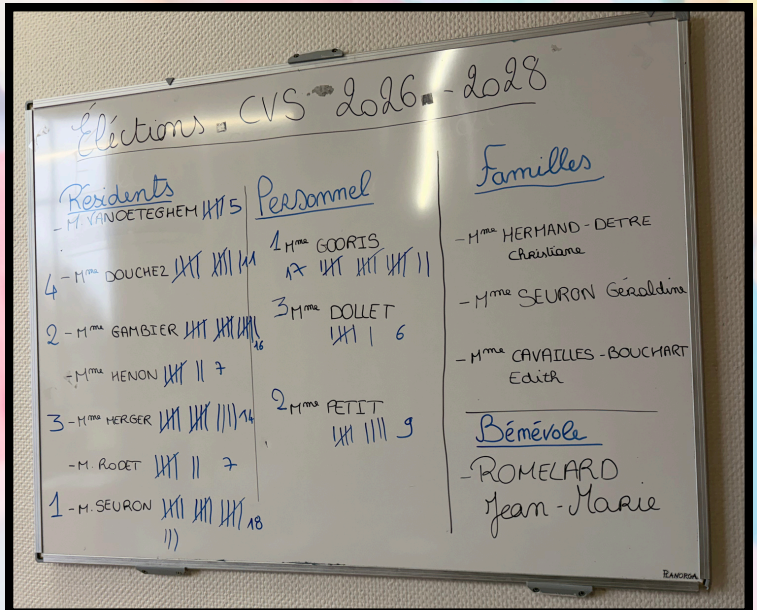 Éléctions. CVS 2026.-2028
Résidents
- M. VANOETEGHEM 5
4 - Mme DOUCHEZ 11
2 - Mme GAMBIER 16
- Mme HENON 7
3 - Mme MERGER 14
- M. RODET 7
1 - M. SEURON 18
Personnel
1 Mme GOORIS
17
3 Mme DOLLET
6
2 Mme PETIT
9
Familles
- Mme HERMAND-DETRE
Christiane
- Mme SEURON Géraldine
- Mme CAVAILLES-BOUCHART
Edith
Bémévole
- ROMELARD
Jean-Marie
PLANORGA